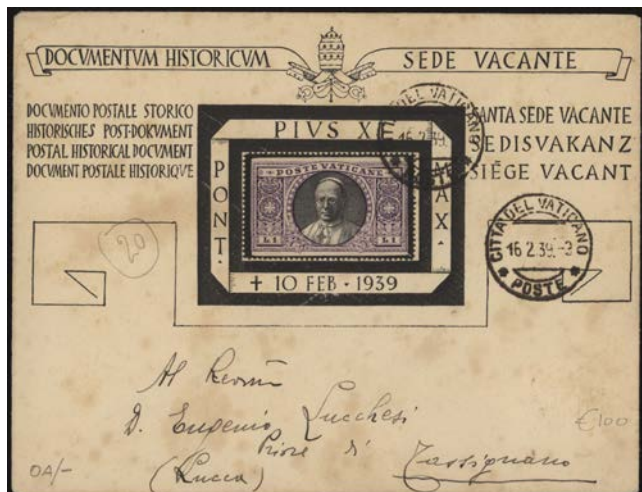 DOCVMENTVM HISTORICVM
SEDE VACANTE
DOCVMENTO POSTALE STORICO
HISTORISCHES POST-DOKVMENT
POSTAL HISTORICAL DOCVMENT
DOCVMENT POSTALE HISTORIQVE
SANTA SEDE VACANTE
SEDISVAKANZ
SIÈGE VACANT
PIVS XI
PONT.
MAX.
POSTE VATICANE
L.1
L.1
✝ 10 FEB · 1939
DEL VATICANO
16.2.39
CITTÀ DEL VATICANO
16.2.39.-3
POSTE
20
Al
D. Eugenio Lucchesi
Priore di Tassignano
(Lucca)
€100
OA/-